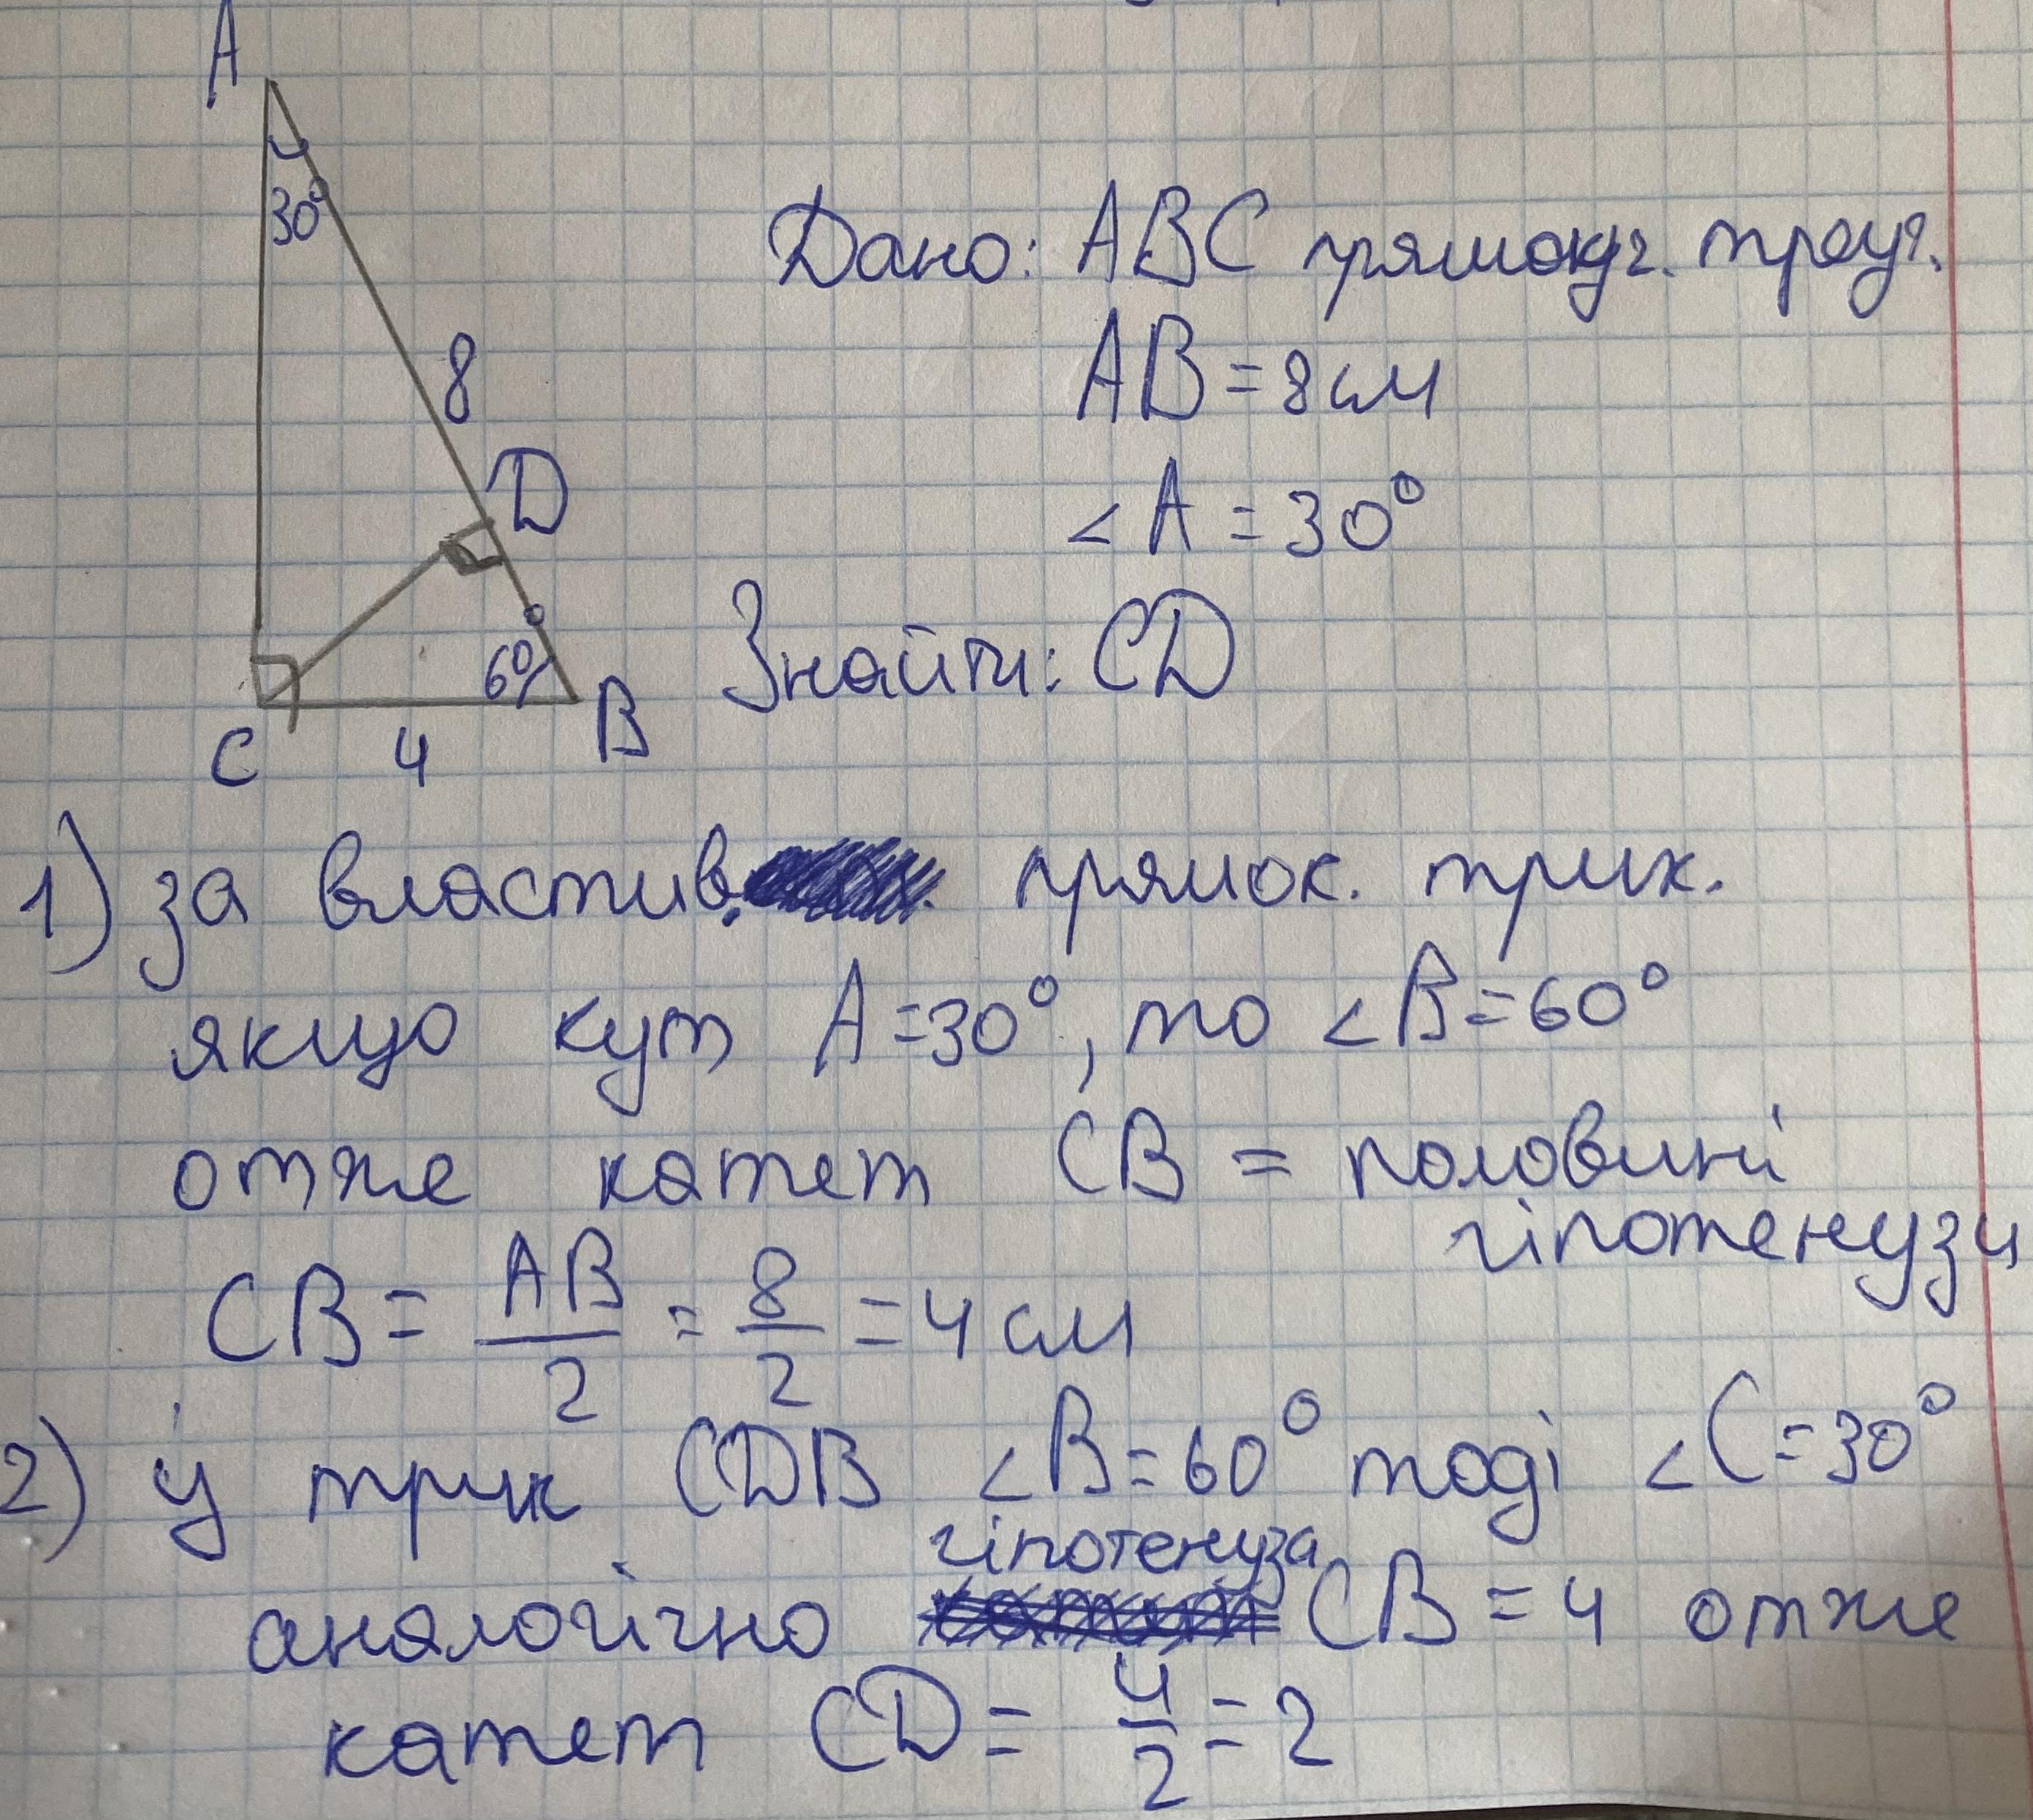 A
30°
8
D
60°
C
4
B
Дано: ABC прямокут. треуг.
AB = 8 см
< A = 30°
Знайти: CD
1) за властив. прямок. трик.
якщо кут A = 30°, то < B = 60°
отже катет CB = половині
гіпотенузи
CB = AB/2 = 8/2 = 4 см
2) у трик CDB < B = 60° тоді < C = 30°
гіпотенуза
аналогічно CB = 4 отже
катет CD = 4/2 = 2